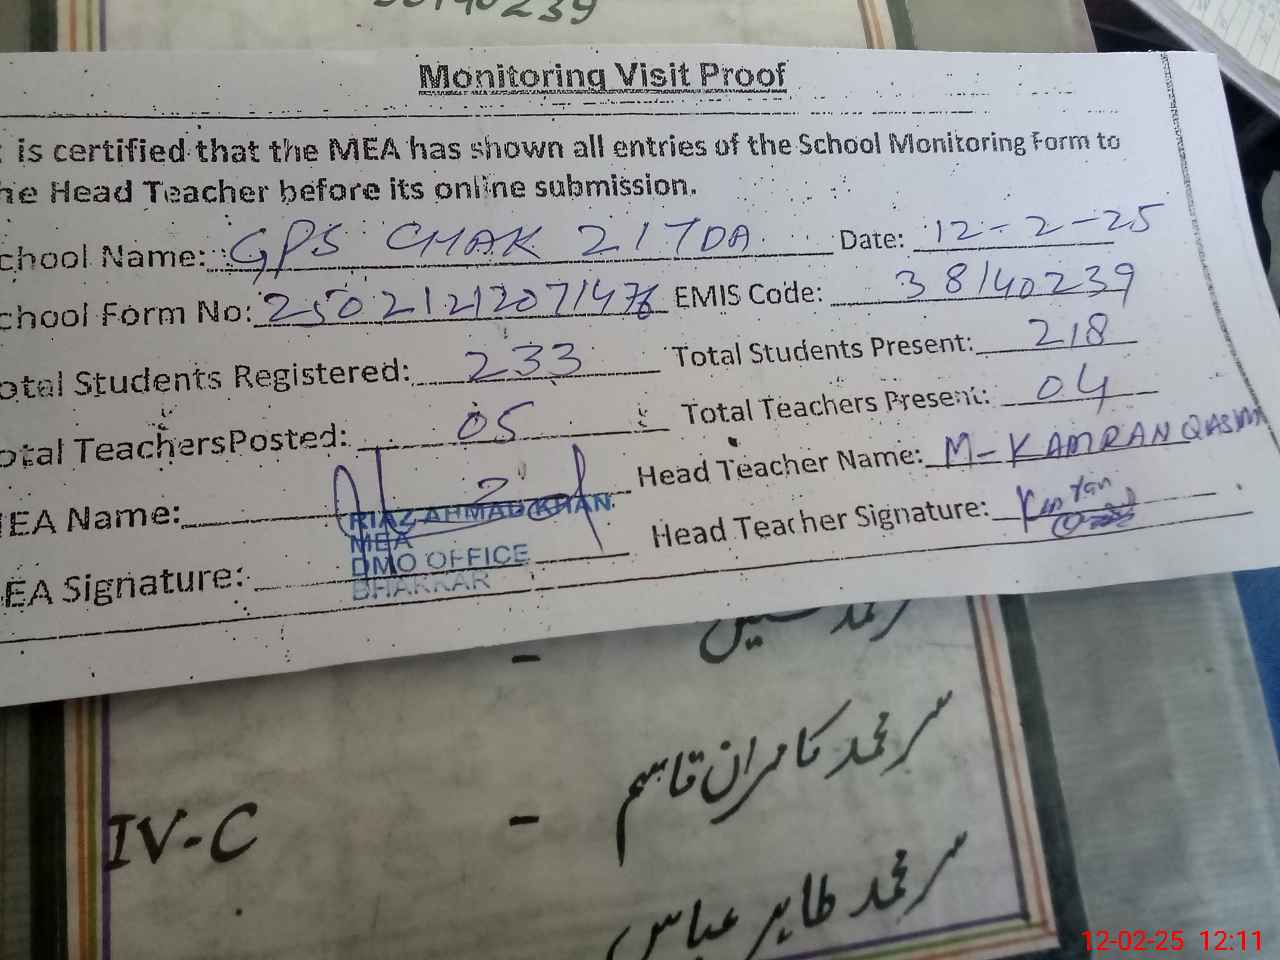 38140239
Monitoring Visit Proof
is certified that the MEA has shown all entries of the School Monitoring Form to
he Head Teacher before its online submission.
chool Name: GPS CHAK 217DA Date: 12-2-25
chool Form No: 25021212071476 EMIS Code: 38140239
otal Students Registered: 233 Total Students Present: 218
otal TeachersPosted: 05 Total Teachers Present: 04
EA Name: Head Teacher Name: M-KAMRAN QASIM
RIAZ AHMAD KHAN
MEA
DMO OFFICE
BHAKKAR
EA Signature: Head Teacher Signature:
سر محمد کامران قاسم
IV-C -
سر محمد طاہر عباس
12-02-25 12:11